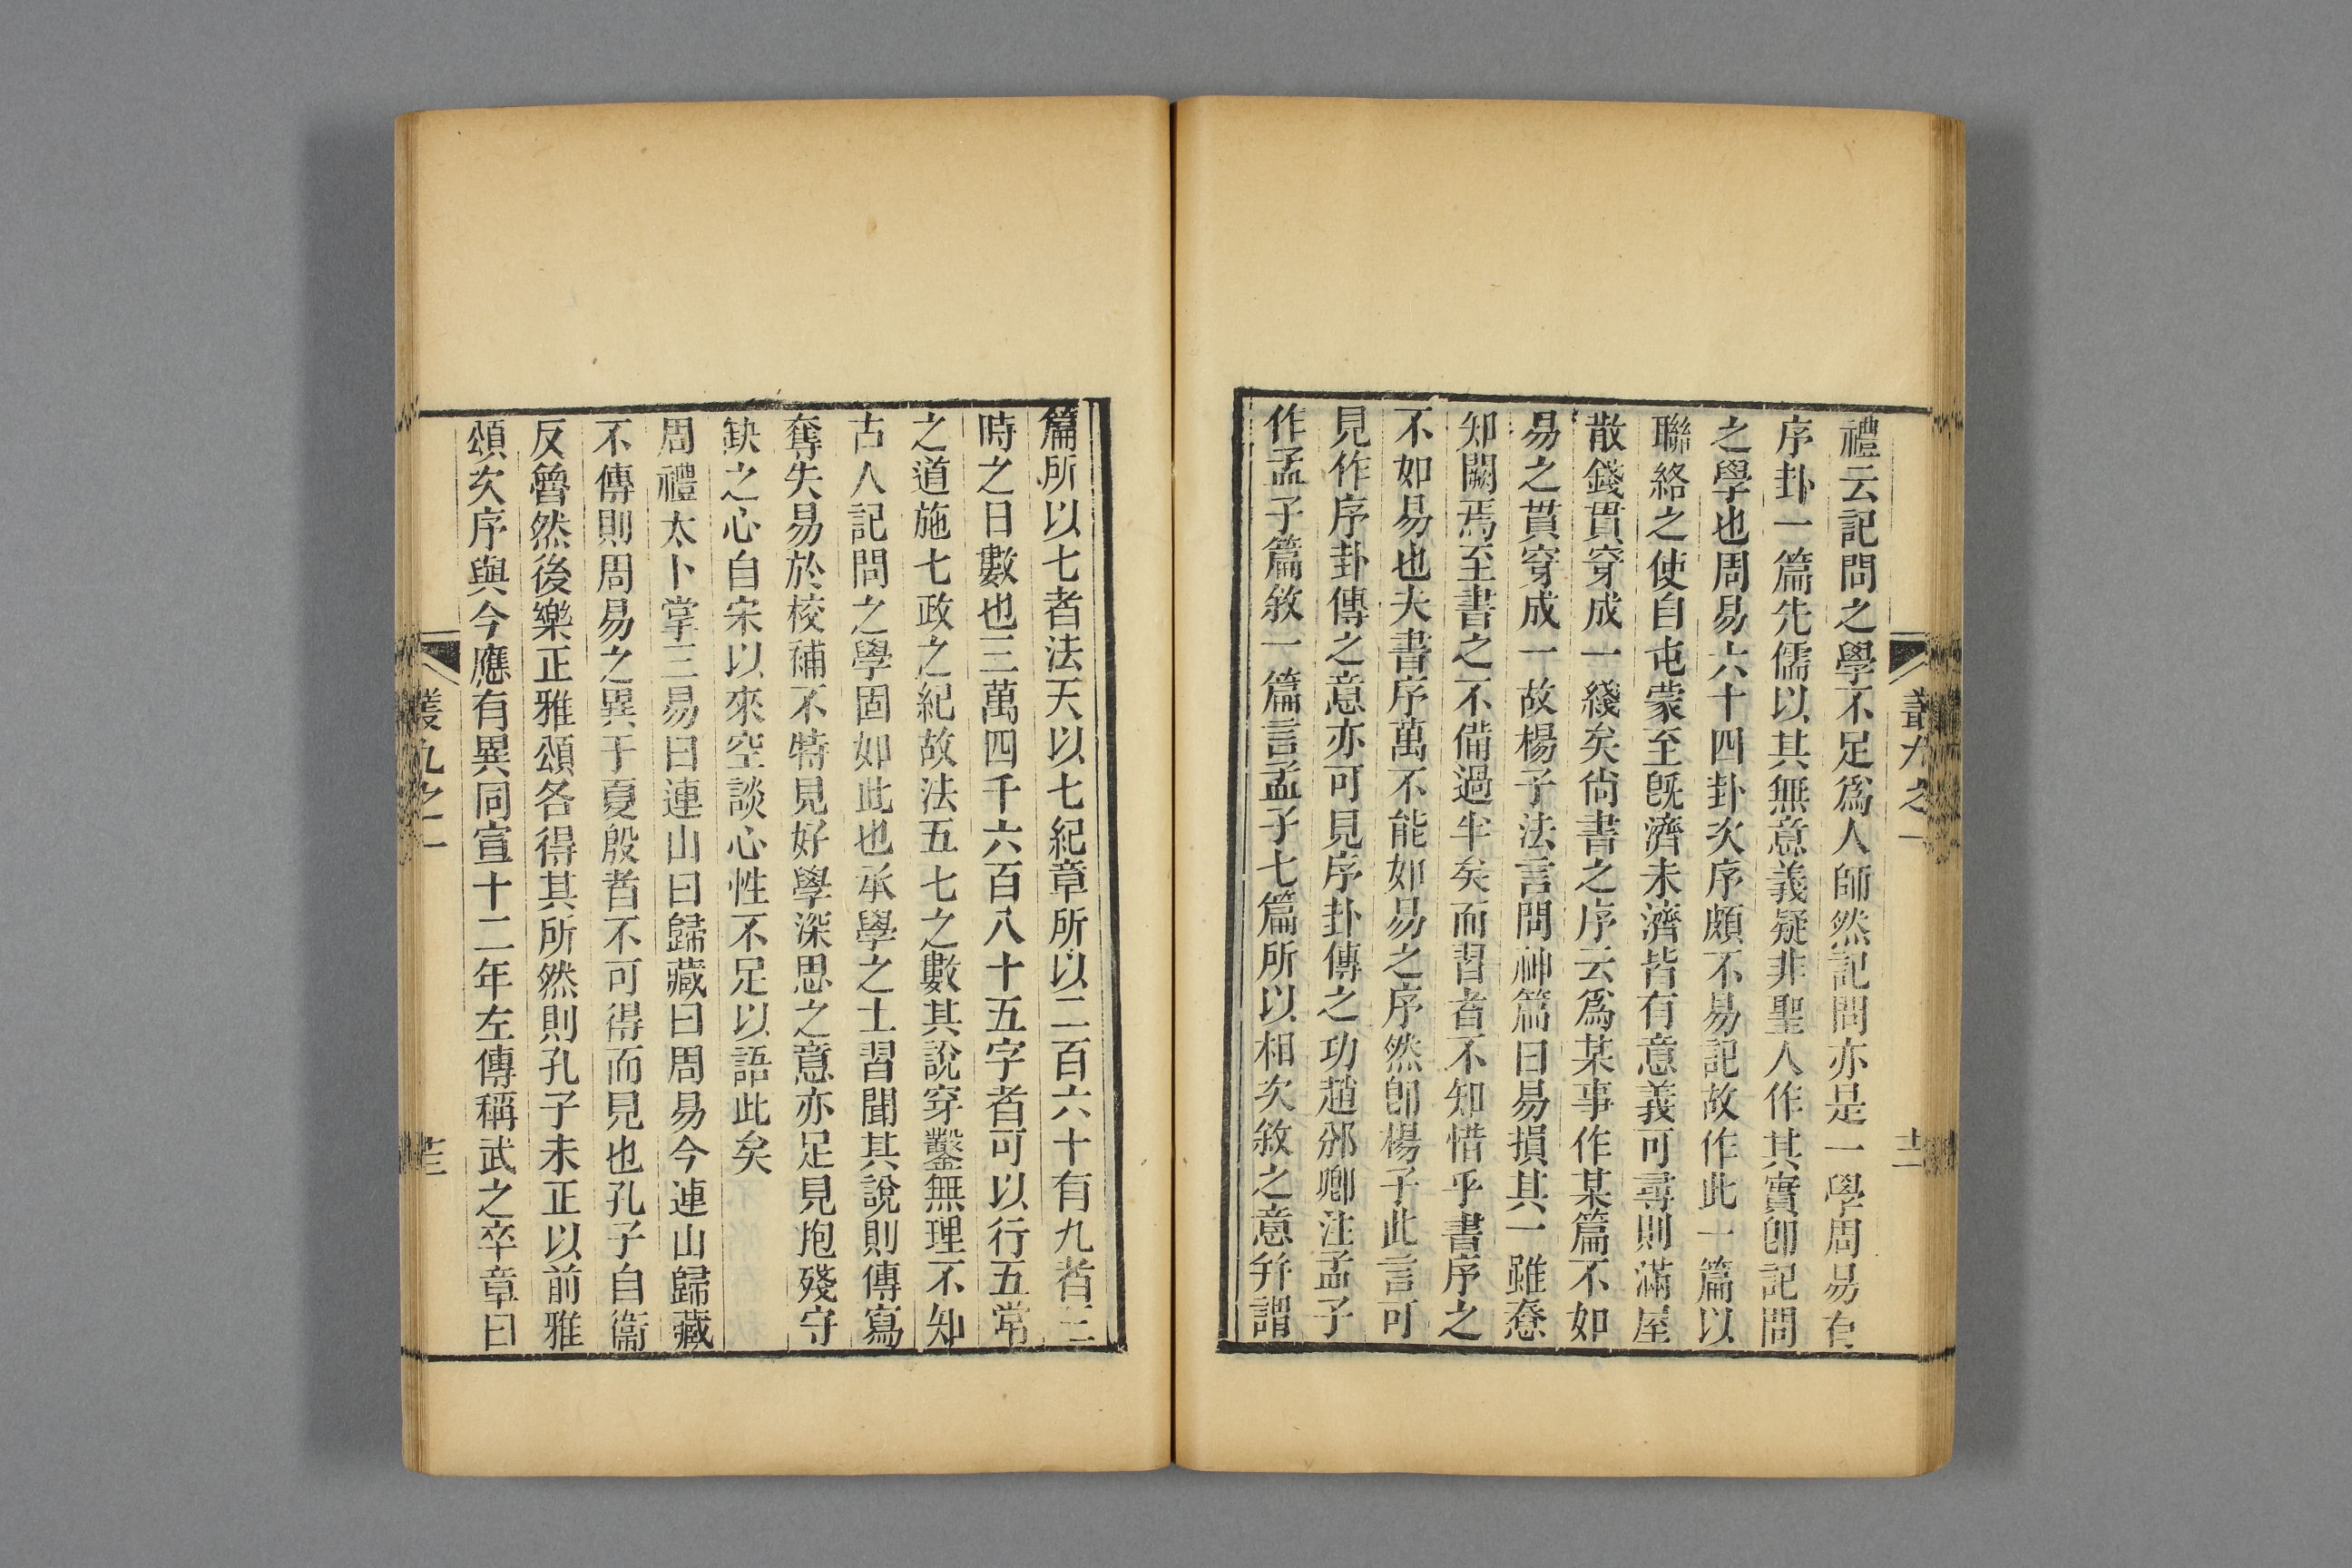 叢九之一
十二
禮云記問之學不足爲人師然記問亦是一學周易有
序卦一篇先儒以其無意義疑非聖人作其實卽記問
之學也周易六十四卦次序頗不易記故作此一篇以
聯絡之使自屯蒙至旣濟未濟皆有意義可尋則滿屋
散錢貫穿成一綫矣尙書之序云爲某事作某篇不如
易之貫穿成一故楊子法言問神篇曰易損其一雖惷
知闕焉至書之不備過半矣而習者不知惜乎書序之
不如易也夫書序萬不能如易之序然卽楊子此言可
見作序卦傳之意亦可見序卦傳之功趙邠卿注孟子
作孟子篇敘一篇言孟子七篇所以相次敘之意幷謂
篇所以七者法天以七紀章所以二百六十有九者三
時之日數也三萬四千六百八十五字者可以行五常
之道施七政之紀故法五七之數其說穿鑿無理不知
古人記問之學固如此也承學之士習聞其說則傳寫
奪失易於校補不特見好學深思之意亦足見抱殘守
缺之心自宋以來空談心性不足以語此矣
周禮太卜掌三易曰連山曰歸藏曰周易今連山歸藏
不傳則周易之異于夏殷者不可得而見也孔子自衞
反魯然後樂正雅頌各得其所然則孔子未正以前雅
頌次序與今應有異同宣十二年左傳稱武之卒章曰
叢九之一